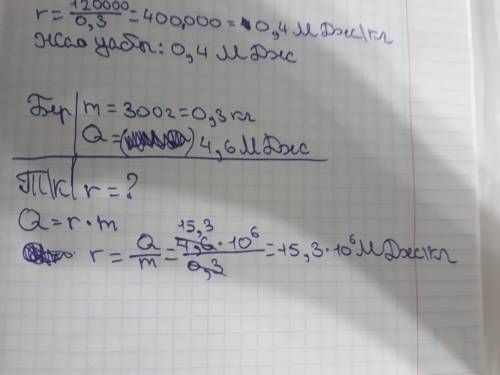 r = 120000/0,3 = 400,000 = 0,4 М Дж\кг
Жао уабы: 0,4 М Дж
Бер | m = 300г = 0,3 кг
Q = 4,6 М Дж
Т\к | r = ?
Q = r · m
15,3
r = Q/m = 4,6 · 10⁶/0,3 = 15,3 · 10⁶ М Дж\кг